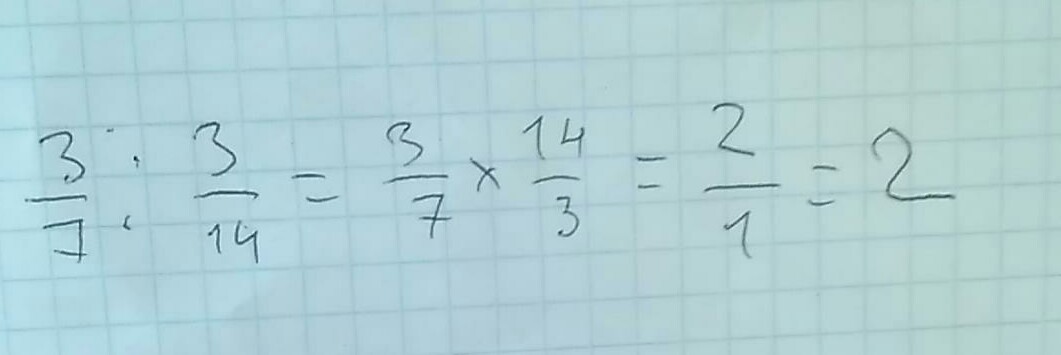 3/7 : 3/14 = 3/7 × 14/3 = 2/1 = 2